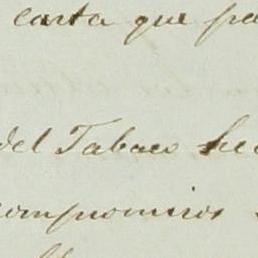 carta que pa
del Tabaco
compromisos